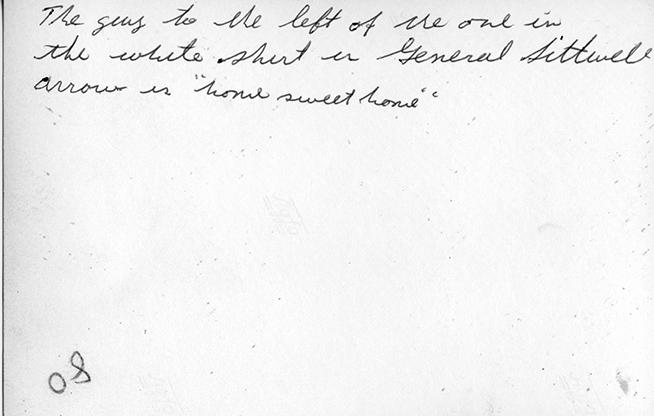 The guy to the left of the one in
the white shirt is General Sittwell
arrow is "home sweet home"
08